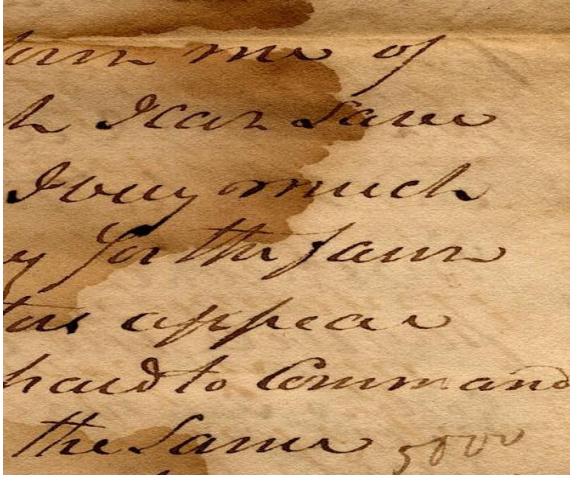 me of
h I can Save
I buy much
for the farm
appear
hard to Command
the Same 5000